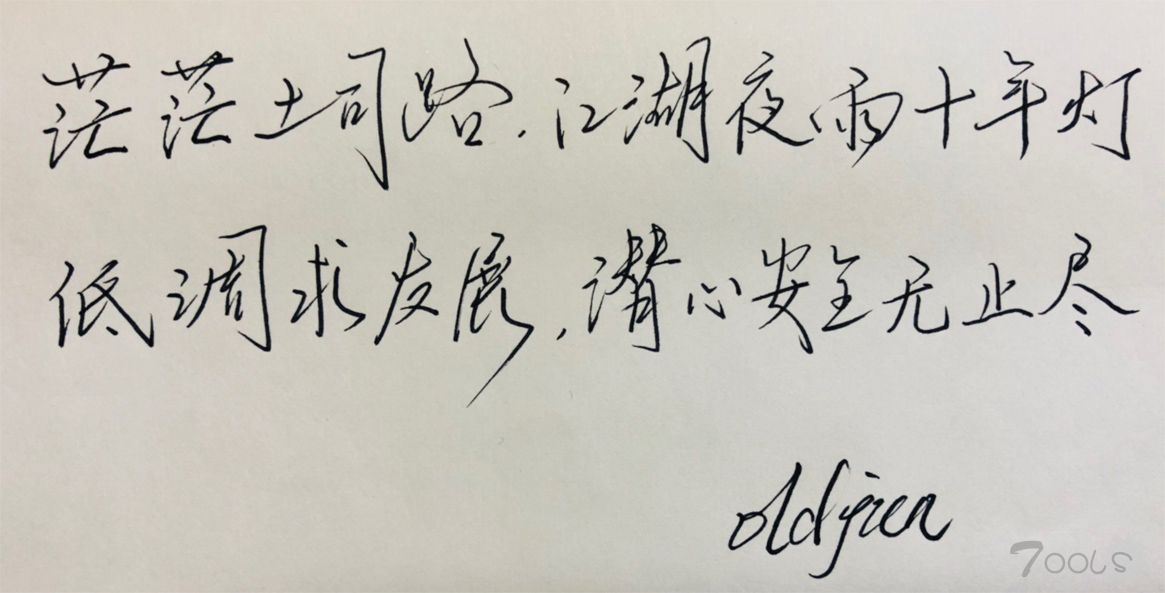 茫茫土司路.江湖夜雨十年灯
低调求发展,潜心安全无止尽
oldjun
7OOLS